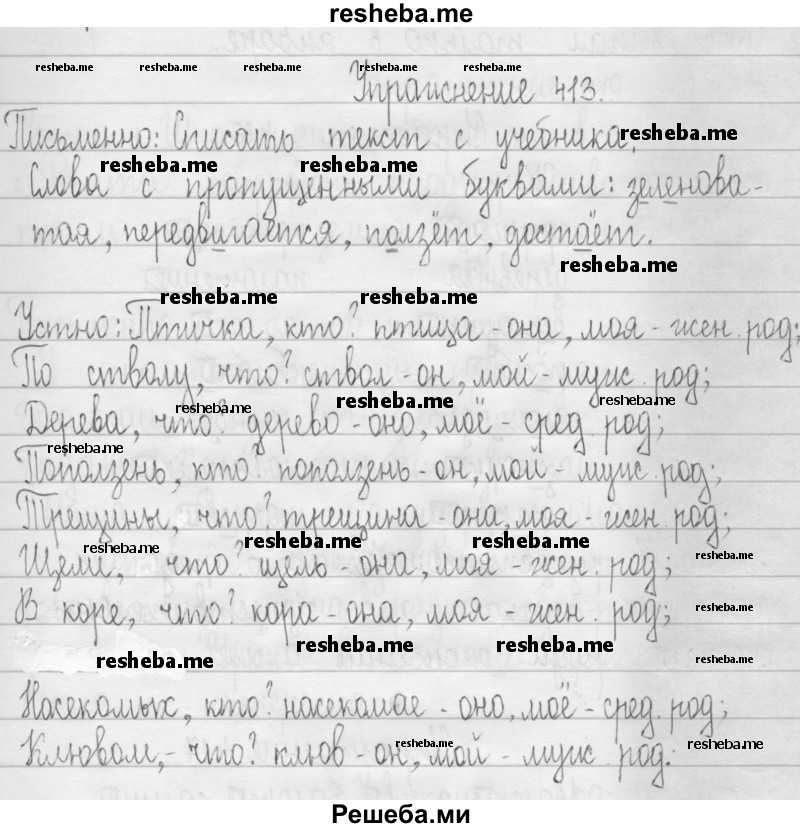 resheba.me
resheba.me resheba.me resheba.me resheba.me resheba.me
Упражнение 413.
Письменно: Списать текст с учебника. resheba.me
resheba.me resheba.me
Слова с пропущенными буквами: зеленова-
тая, передвигается, ползёт, достаёт.
resheba.me
resheba.me resheba.me
Устно: Птичка, кто? птица - она, моя - жен. род;
По стволу, что? ствол - он, мой - муж. род;
resheba.me resheba.me resheba.me
Дерева, что? дерево - оно, моё - сред. род;
resheba.me
Поползень, кто? поползень - он, мой - муж. род;
Трещины, что? трещина - она, моя - жен. род;
resheba.me resheba.me resheba.me resheba.me
Щели, что? щель - она, моя - жен. род;
В коре, что? кора - она, моя - жен. род; resheba.me
resheba.me resheba.me resheba.me resheba.me
Насекомых, кто? насекомое - оно, моё - сред. род;
Клювом, - что? клюв - он, мой - муж. род.
resheba.me resheba.me
Решеба.ми